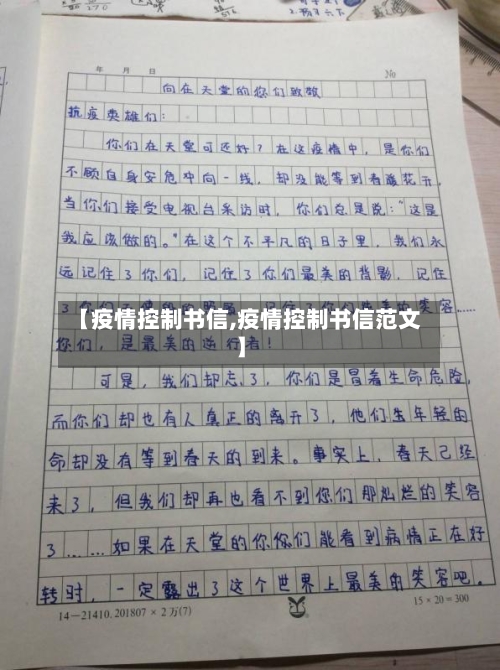 年 月 日 No
向在天堂的您们致敬
抗疫英雄们：
你们在天堂可还好？在这疫情中，是你们
不顾自身安危冲向一线，却没能等到春暖花开，
当你们接受电视台采访时，你们总是说："这是
我应该做的。"在这个不平凡的日子里，我们永
远记住了你们，记住了你们最美的背影，记住
【疫情控制书信,疫情控制书信范文
】
您们，是最美的逆行者！
可是，我们却忘了，你们是冒着生命危险，
而你们却也有人真正的离开了，他们生年轻的
命却没有等到春天的到来。事实上，春天已经
来了，但我们却再也看不到你们那灿烂的笑容
了……如果在天堂的你你们能看到病情正在好
转时，一定露出了这个世界上最美的笑容吧。
14－21410.201807×2万(7)
15×20＝300